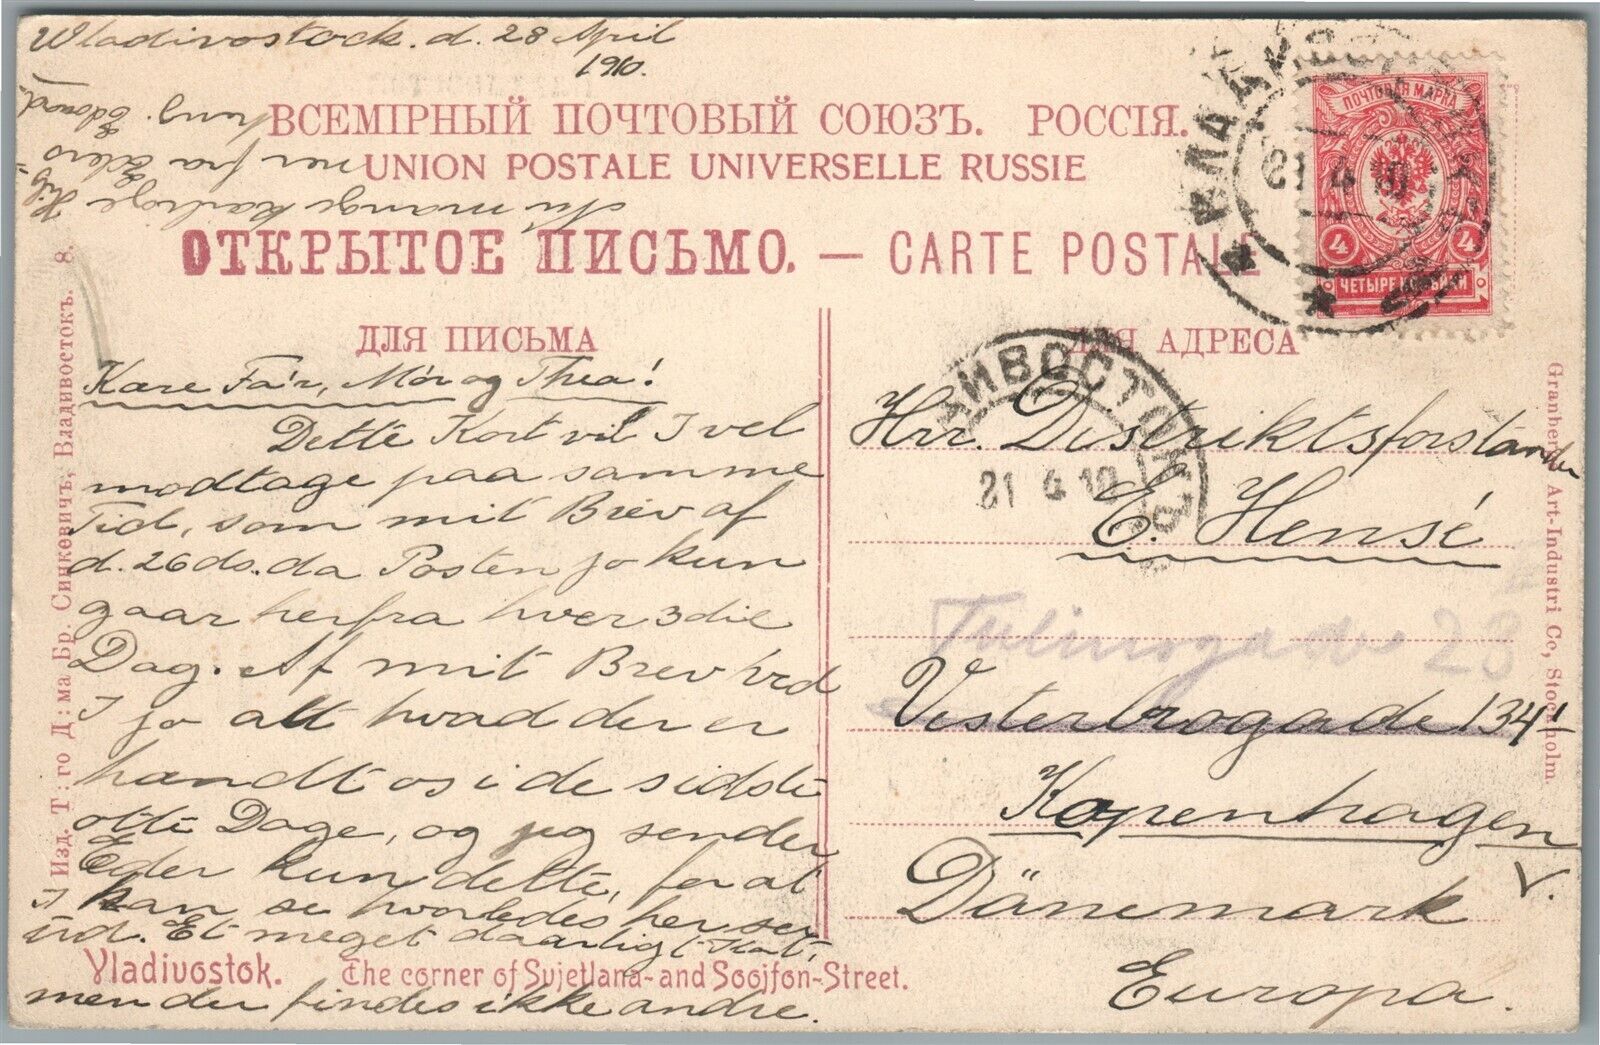 Wladivostock. d. 28 April
1910.
Nu mange kærlige Hils-
ner fra Eders
heng. Edvard.
ВСЕМІРНЫЙ ПОЧТОВЫЙ СОЮЗЪ. РОССІЯ.
UNION POSTALE UNIVERSELLE RUSSIE
ОТКРЫТОЕ ПИСЬМО. — CARTE POSTALE
ПОЧТОВАЯ МАРКА
4 4
ЧЕТЫРЕ КОПѢЙКИ
21 4 10
ДЛЯ ПИСЬМА
ДЛЯ АДРЕСА
ВЛАДИВОСТОКЪ
21 4 10
Kære Fa'r, Mór og Thea!
Dette Kort vil I vel
modtage paa samme
Tid, som mit Brev af
d. 26 ds. da Posten jo kun
gaar herfra hver 3die
Dag. Af mit Brev ved
I jo alt hvad der er
hændt os i de sidste
otte Dage, og jeg sender
Eder kun dette, for at
I kan se hvorledes her ser
ud. Et meget daarligt Kort,
men der findes ikke andre.
Vladivostok. The corner of Svjetlana- and Soojfon-Street.
Hrr. Distriktsforstander
E. Hensé
Tulinsgade 23
Vesterbrogade 134
Kopenhagen
V.
Dänemark
Europa.
Изд. Т: го Д: ма Бр. Синкевичъ, Владивостокъ. 8.
Granbergs Art-Industri Co, Stockholm.